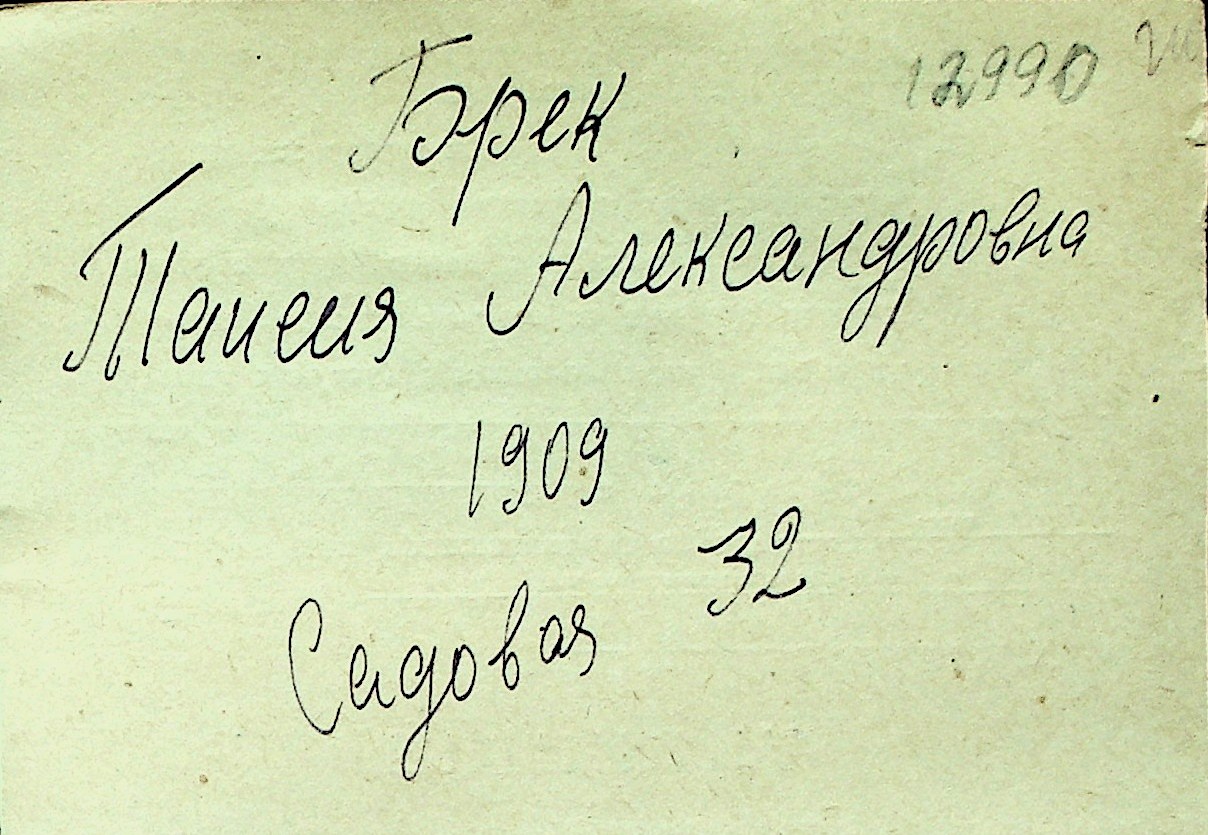 12990
Брек
Таисия Александровна
1909
Садовая 32